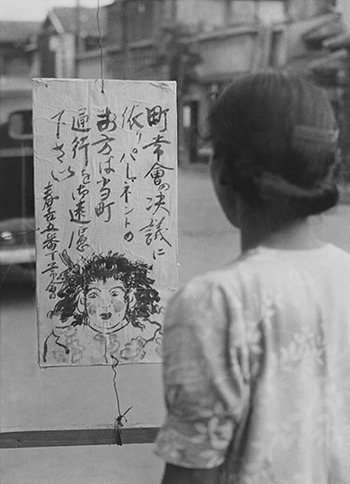 町常會の決議に
依りパーマネントの
お方は当町
通行を御遠慮
下さい
春吉五番丁常會